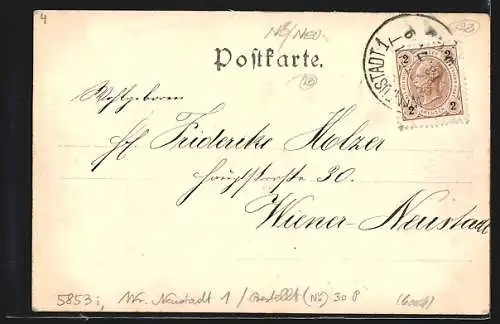 4
Nö/Neu-
Postkarte.
NEUSTADT 1
2 2
2 2
Wohlgeboren
Frl. Friderike Holzer
Hauptstrasse 30.
Wiener-Neustadt
5853i, Wr. Neustadt 1 / Bestellt (Nö) 30 P